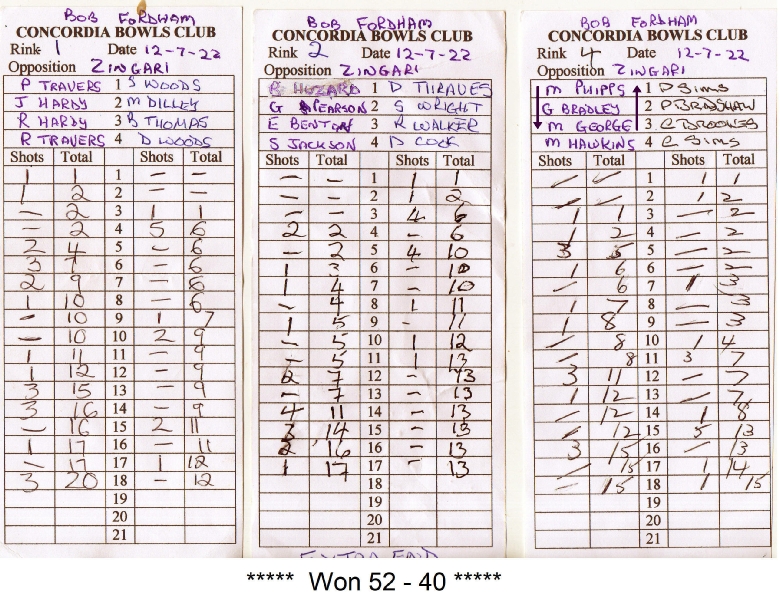 BOB FORDHAM
CONCORDIA BOWLS CLUB
Rink 1 Date 12-7-22
Opposition ZINGARI
P TRAVERS 1 S WOODS
J HARDY 2 M DILLEY
R HARDY 3 B THOMAS
R TRAVERS 4 D WOODS
Shots Total Shots Total
1 1 1 – –
1 2 2 – –
– 2 3 1 1
– 2 4 5 6
2 4 5 – 6
3 7 6 – 6
2 9 7 – 6
1 10 8 – 6
– 10 9 1 7
– 10 10 2 9
1 11 11 – 9
1 12 12 – 9
3 15 13 – 9
3 16 14 – 9
– 16 15 2 11
1 17 16 – 11
– 17 17 1 12
3 20 18 – 12
19
20
21
BOB FORDHAM
CONCORDIA BOWLS CLUB
Rink 2 Date 12-7-22
Opposition ZINGARI
HOZARD 1 D THRAVES
G PEARSON 2 S WRIGHT
E BENTON 3 R WALKER
S JACKSON 4 D COCK
Shots Total Shots Total
– – 1 1 1
– – 2 1 2
– – 3 4 6
2 2 4 – 6
– 2 5 4 10
1 3 6 – 10
1 4 7 – 10
– 4 8 1 11
1 5 9 – 11
– 5 10 1 12
– 5 11 1 13
2 7 12 – 13
– 7 13 – 13
4 11 14 – 13
3 14 15 – 13
2 16 16 – 13
1 17 17 – 13
18
19
20
21
EXTRA END
BOB FORDHAM
CONCORDIA BOWLS CLUB
Rink 4 Date 12-7-22
Opposition ZINGARI
M PHIPPS 1 D Sims
G BRADLEY 2 P BRADSHAW
M GEORGE 3 C BROOKES
M HAWKINS 4 C Sims
Shots Total Shots Total
– – 1 1 1
– – 2 1 2
1 1 3 – 2
1 2 4 – 2
3 5 5 – 2
1 6 6 – 2
– 6 7 1 3
1 7 8 – 3
1 8 9 – 3
– 8 10 1 4
– 8 11 3 7
3 11 12 – 7
1 12 13 – 7
– 12 14 1 8
– 12 15 5 13
3 15 16 – 13
– 15 17 1 14
– 15 18 1 15
19
20
21
***** Won 52 - 40 *****